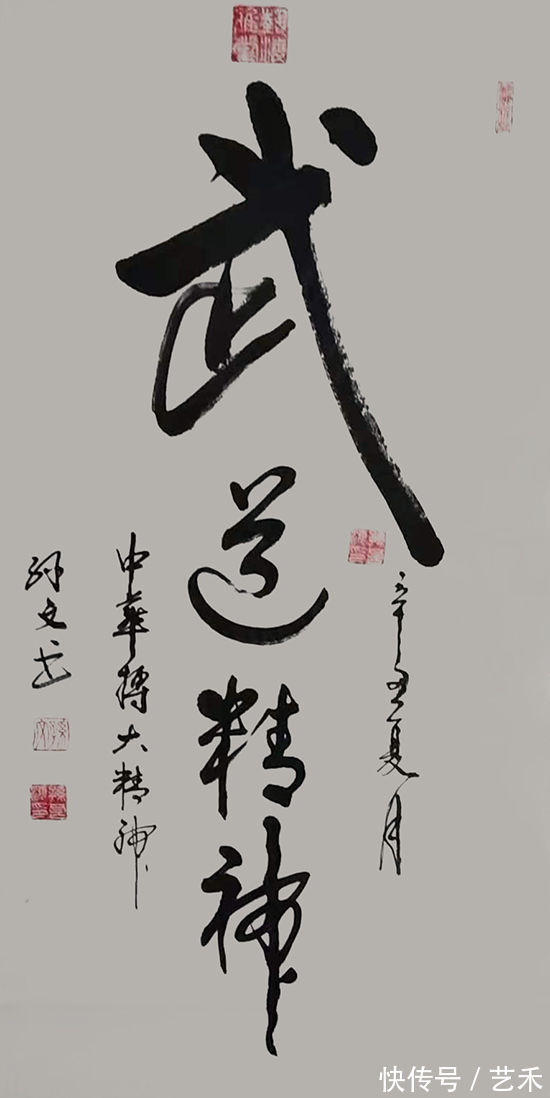 辛丑夏月
武道精神
中華搏大精神
孙文
快传号 / 艺禾